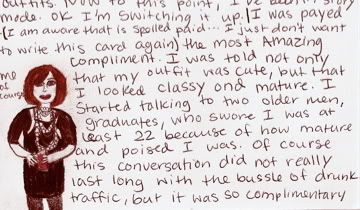 outfits. Now to this point, I've been in story
mode. OK I'm switching it up. I was payed
(I am aware that is spelled paid... I just don't want
to write this card again) the most Amazing
compliment. I was told not only
that my outfit was cute, but that
I looked classy and mature. I
started talking to two older men,
graduates, who swore I was at
least 22 because of how mature
and poised I was. Of course
this conversation did not really
last long with the bussle of drunk
traffic, but it was so complimentary
me
of
course